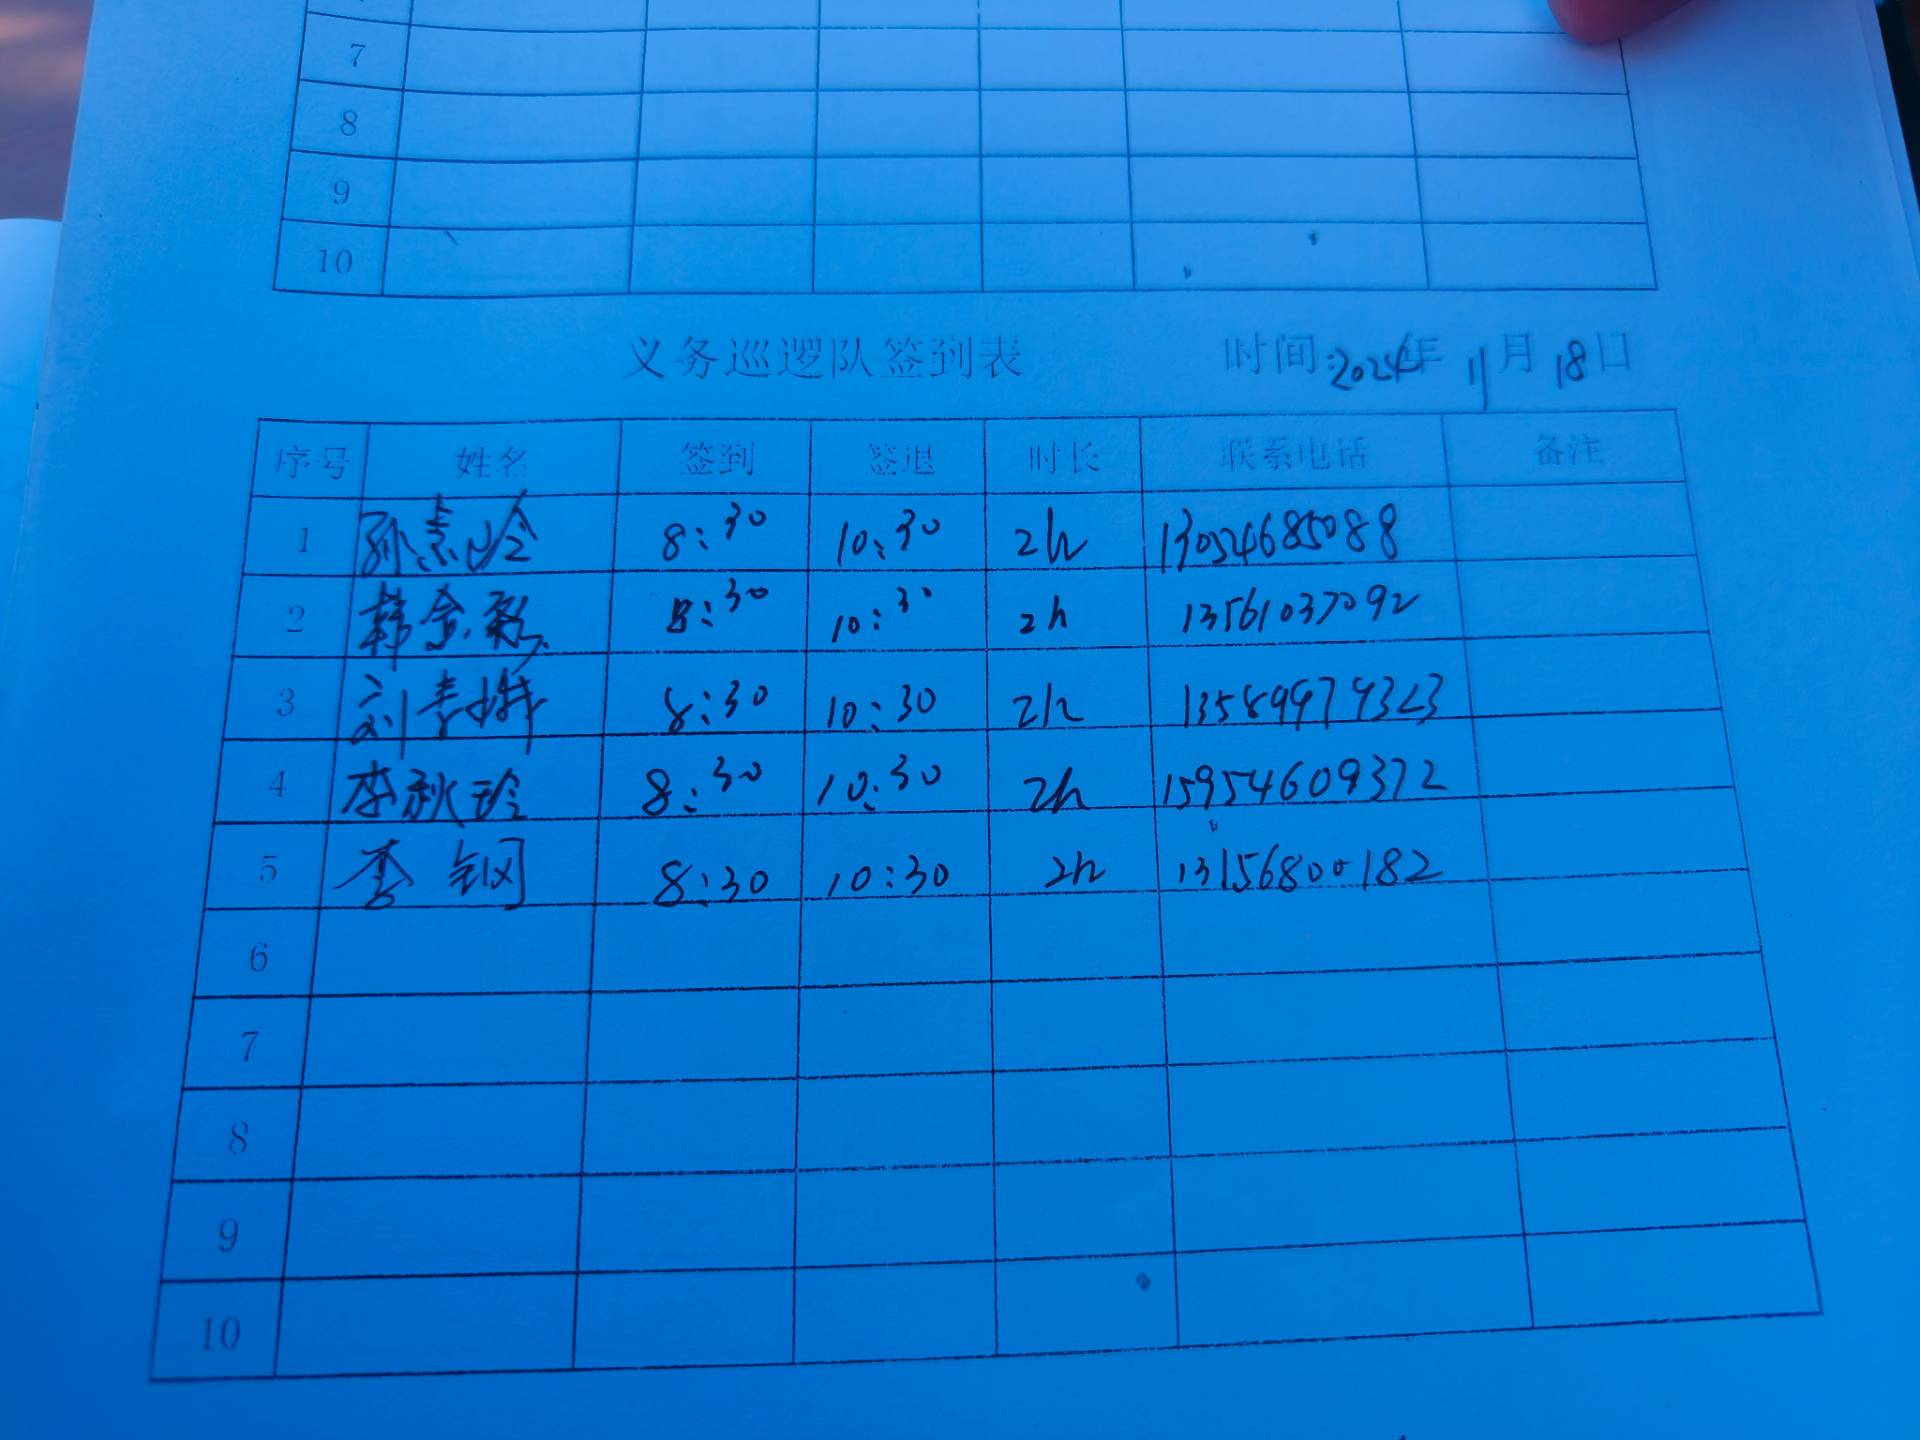 7
8
9
10
义务巡逻队签到表 时间:2024年 11月 18日
序号 姓名 签到 签退 时长 联系电话 备注
1 孙素玲 8:30 10:30 2h 13054685088
2 韩金 8:30 10:30 2h 13561037092
3 刘青娥 8:30 10:30 2h 13589979323
4 李秋玲 8:30 10:30 2h 15954609372
5 李钢 8:30 10:30 2h 13156800182
6
7
8
9
10